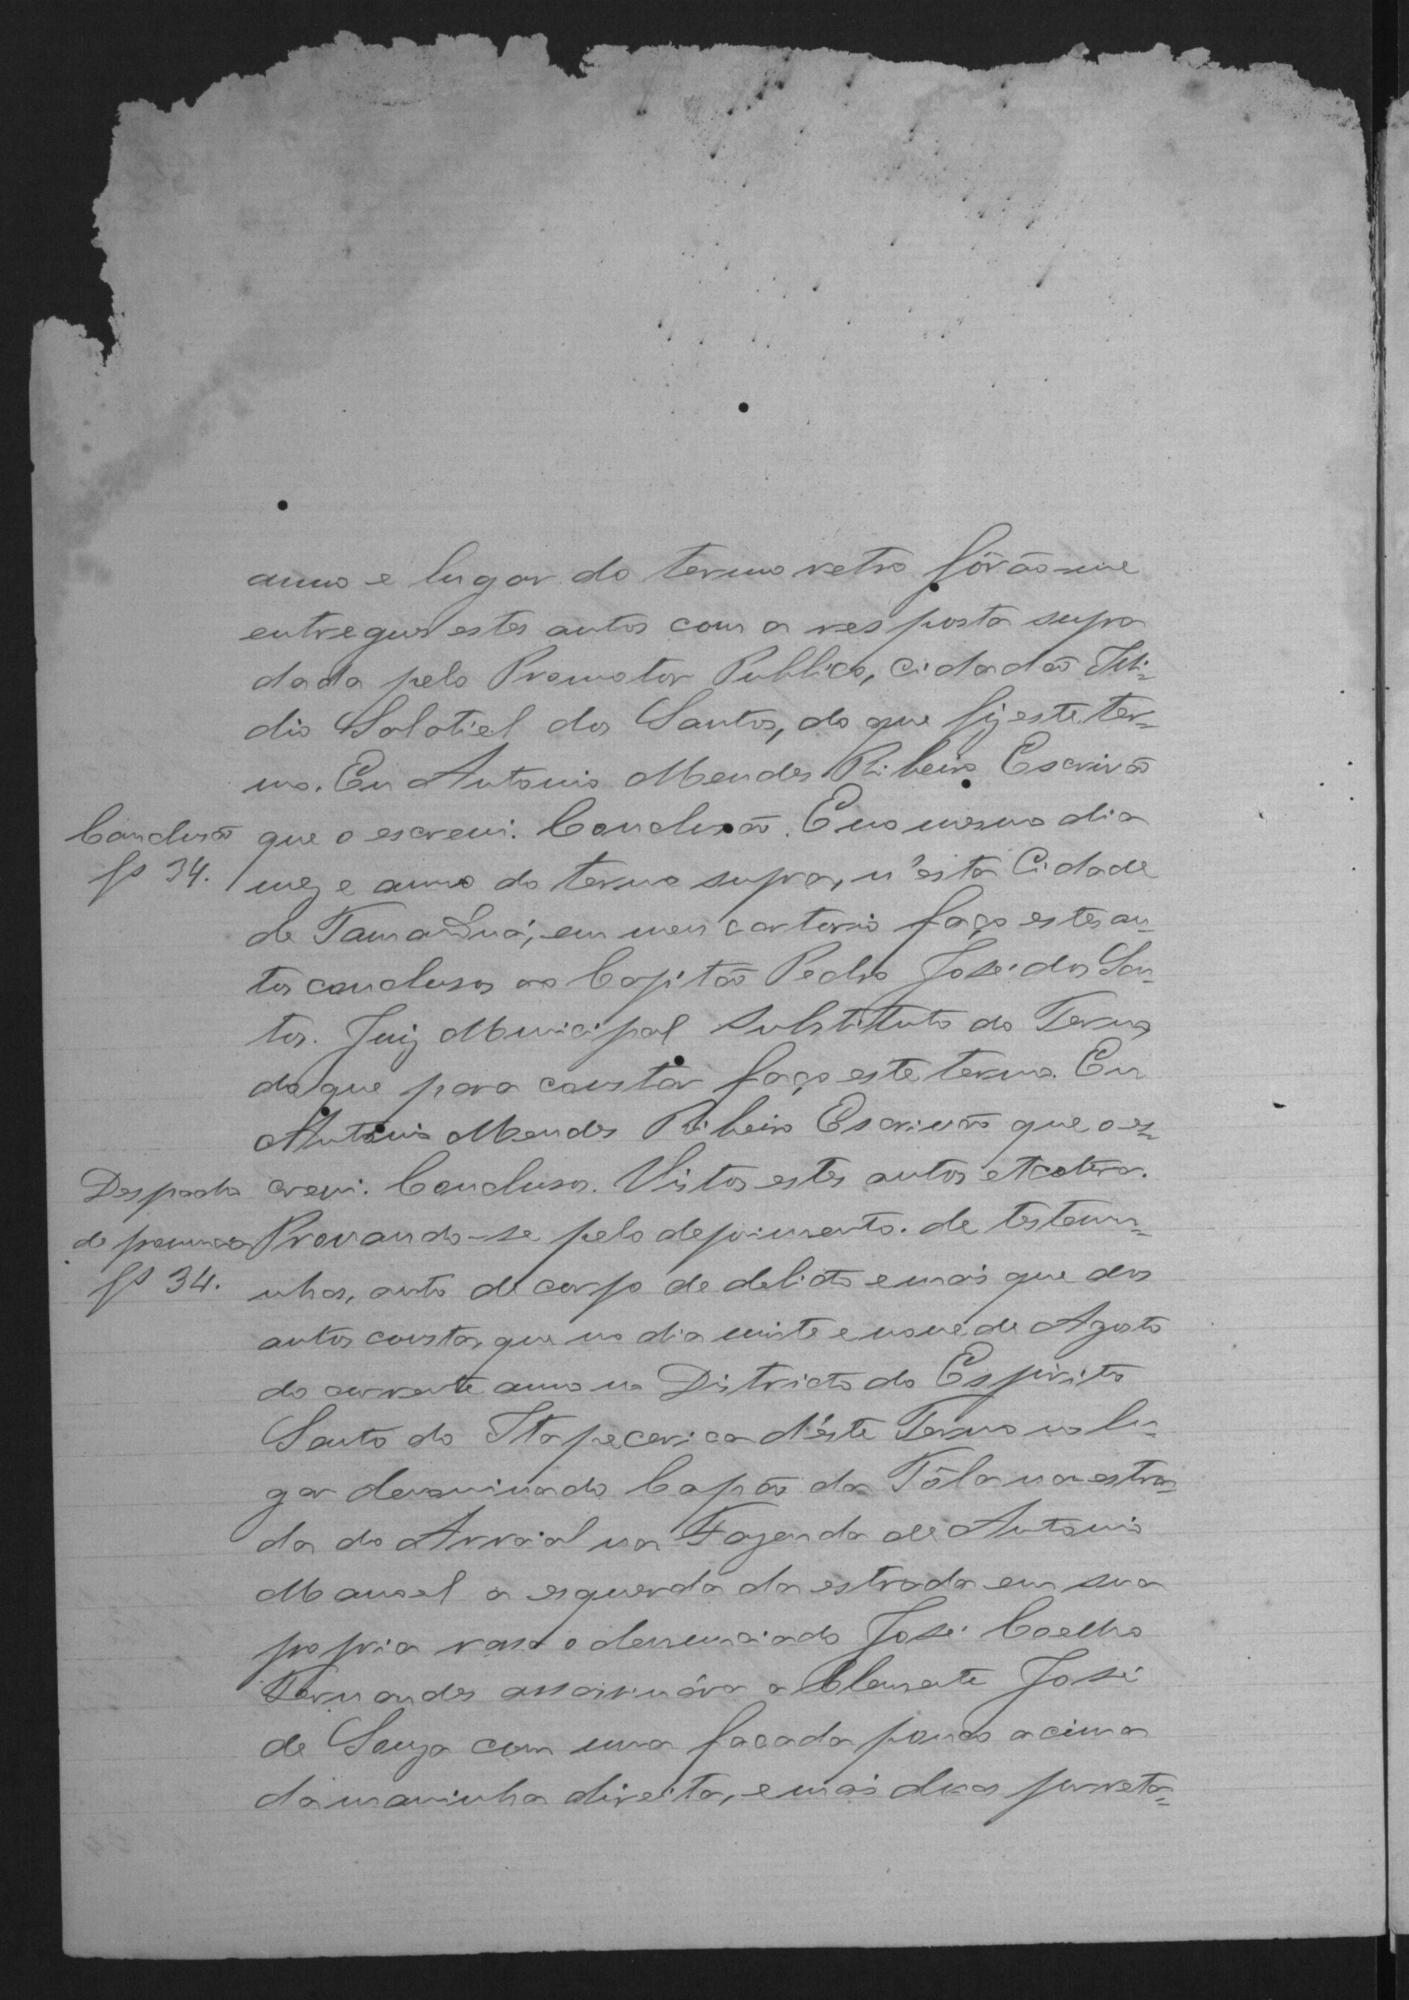 anno e lugar do termo retro fôrão-me
entregues estes autos com a resposta supra
dada pelo Promotor Publico, cidadão
dio Salatiel dos Santos, do que fiz este ter=
mo. Eu Antonio Mendes Ribeiro Escrivão
Conclusão
fs 34.
que o escrevi. Conclusão. E no mesmo dia
mez e anno do termo supra, n'esta Cidade
de Tamanduá, em meu cartorio faço estes au=
tos conclusos ao Capitão Pedro José dos San=
tos. Juiz Municipal Substituto do Termo,
do que para constar faço este termo. Eu
Antonio Mendes Ribeiro Escrivão que o es=
Despacho
de pronuncia
fs 34.
crevi. Conclusos. Vistos estes autos etcetera.
Provando-se pelo depoimento de testemu=
nhas, auto de corpo de delicto e mais que dos
autos consta, que no dia vinte e nove de Agosto
do corrente anno no Districto do Espirito
Santo do Itapecerica d'éste Termo no lu=
gar denominado Capão da Tóla na estra=
da do Arraial na Fazenda de Antonio
Manoel a esquerda da estrada em sua
propria o denunciado José Coelho
Fernandes assassinára a Clemente José
de Souza com uma facada pouco acima
da maminha direita, e mais duas